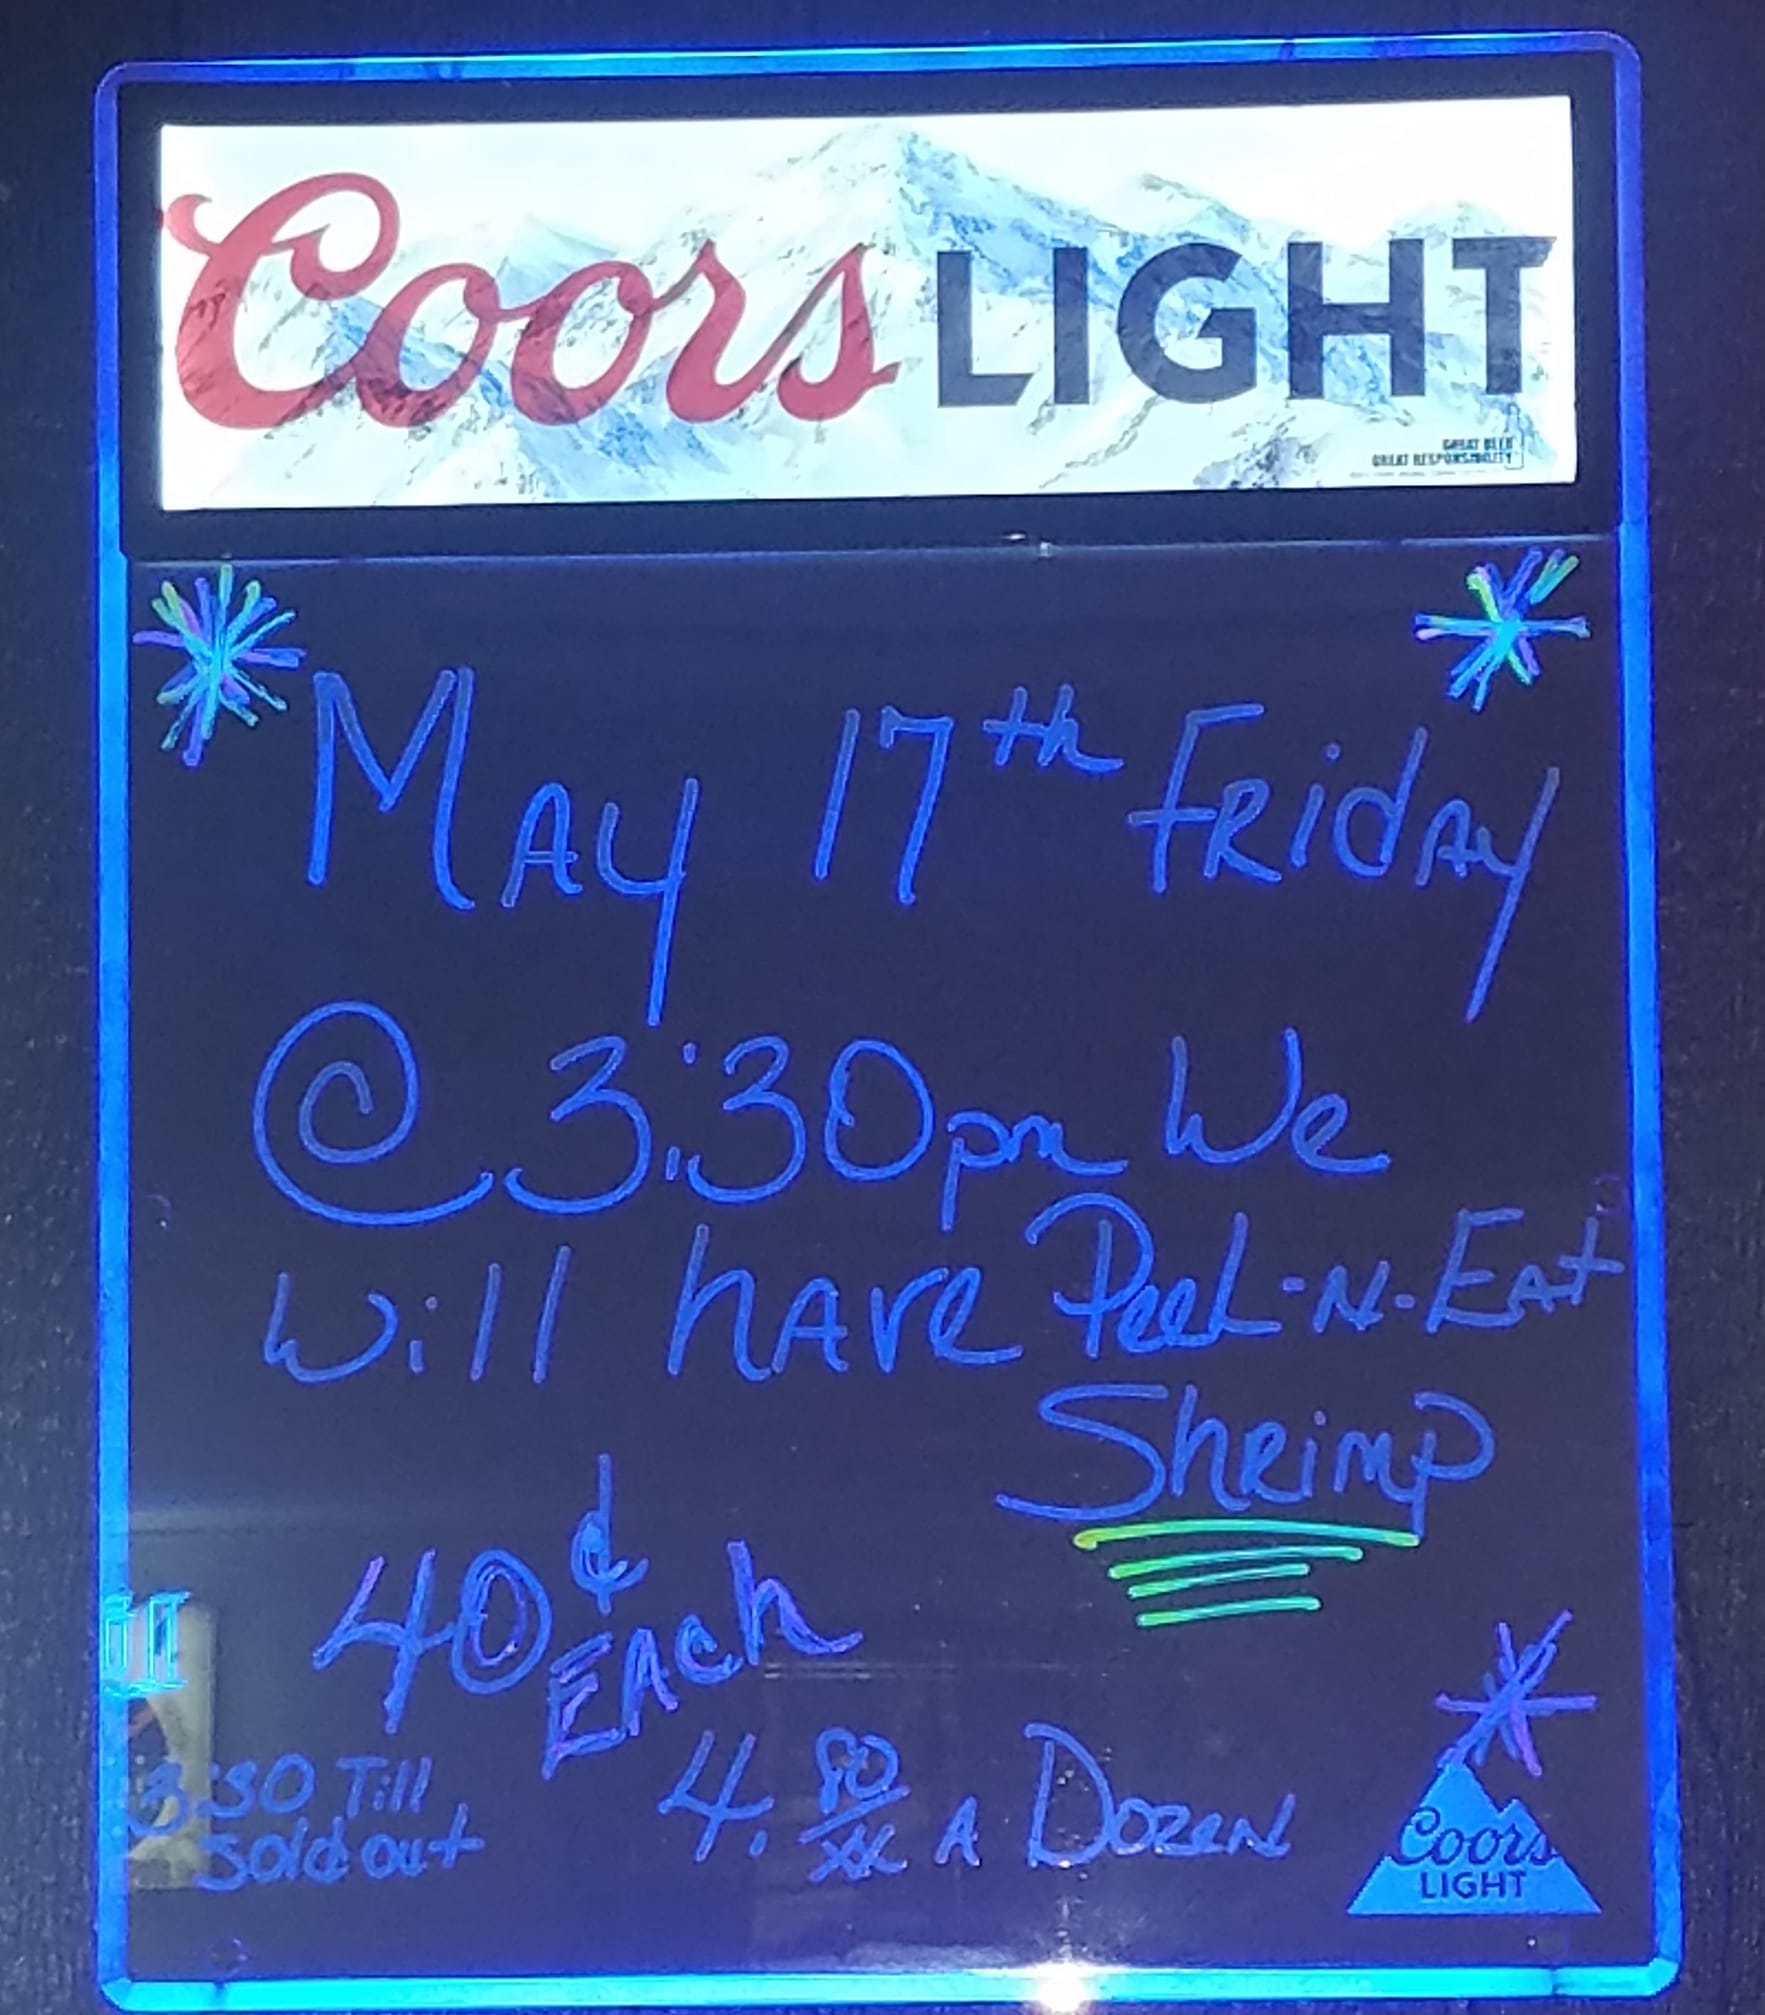 Coors LIGHT
GREAT BEER
GREAT RESPONSIBILITY
MAY 17th FRidAy
@ 3:30pm We
will hAve PeeL-N-EAt
ShRimp
40¢
EAch
3:30 Till
Sold out
4. 80/xx A DozeN
Coors
LIGHT